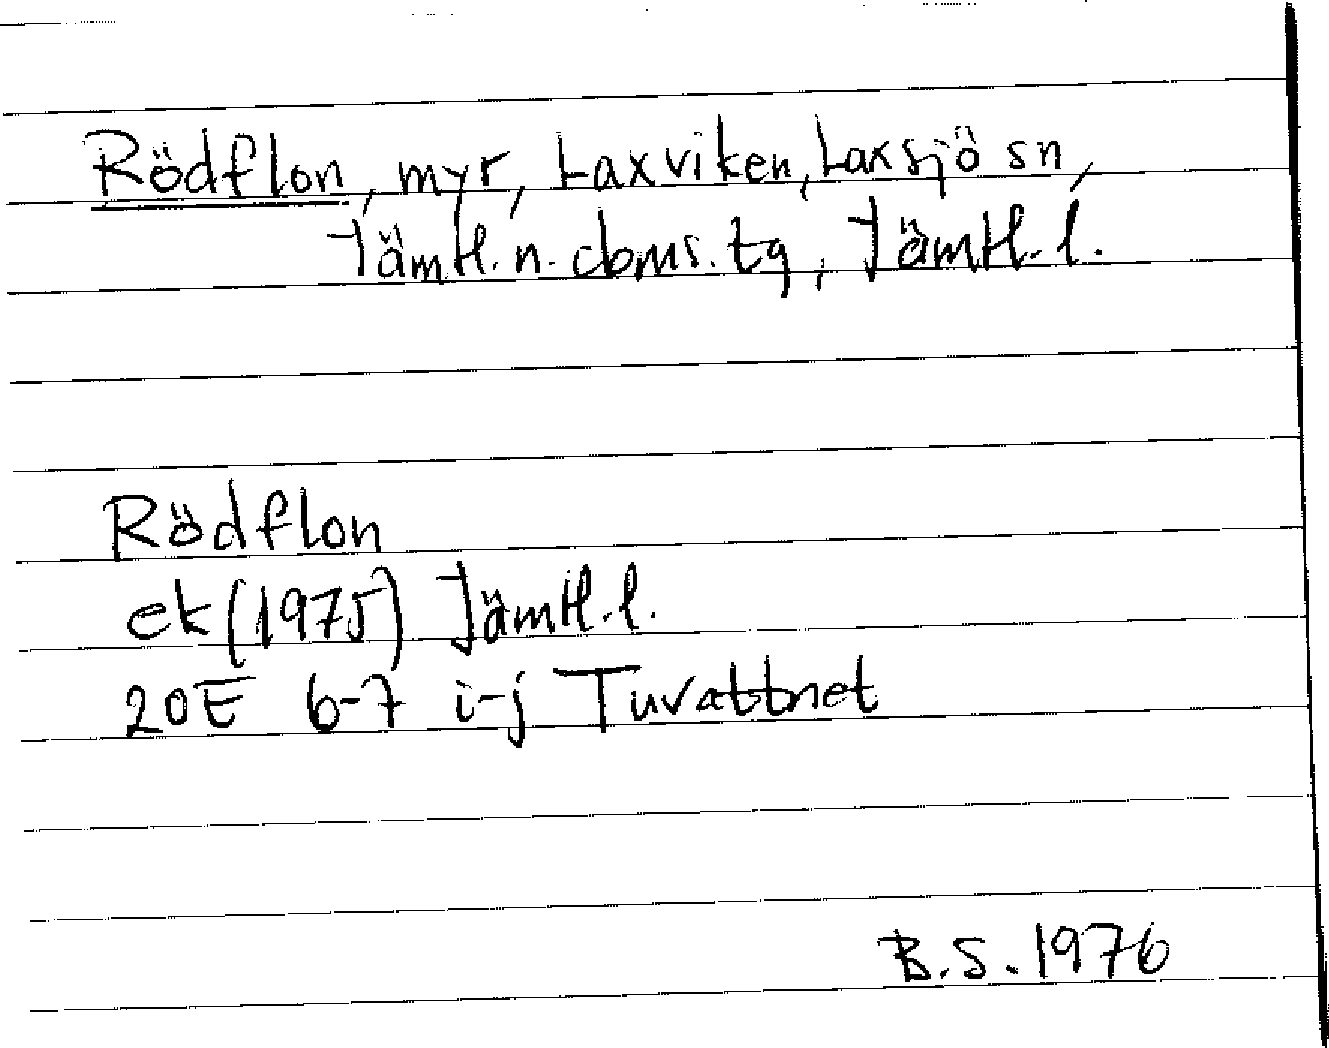 Rödflon, myr, Laxviken, Laxsjö sn,
Jämtl. n. doms. tg, Jämtl. l.
Rödflon
ek (1975) Jämtl. l.
20E 6-7 i-j Tuvattnet
B.S. 1976